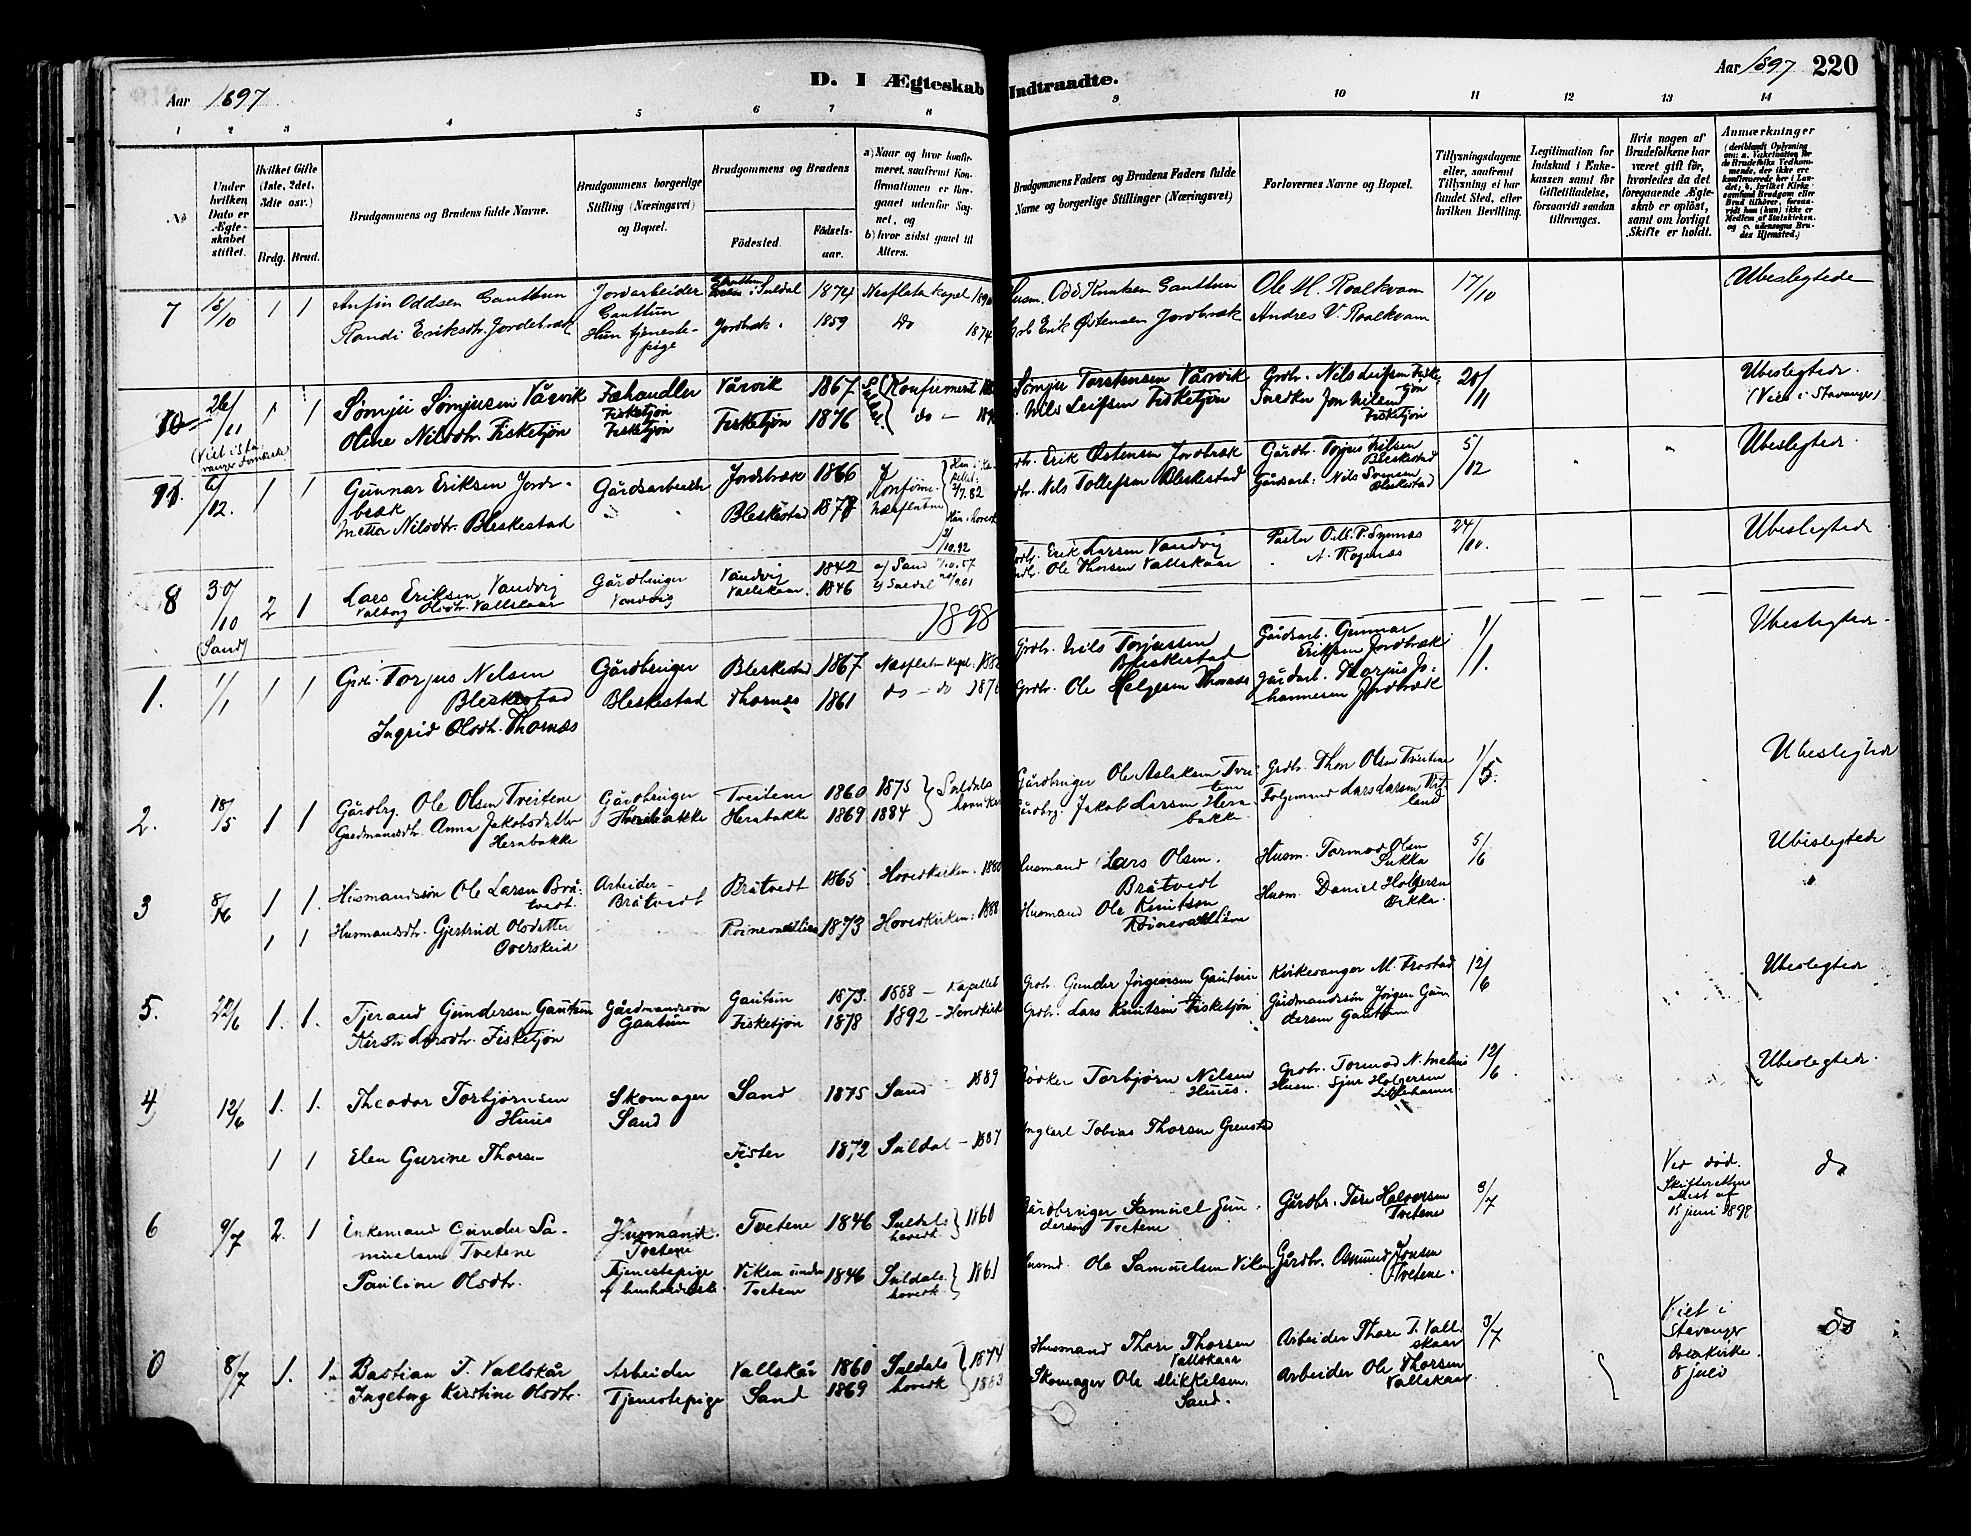 Aar 1897
D. I Ægteskab Indtraadte.
Aar 1897 220
1 2 3 4 5 6 7 8 9 10 11 12 13 14
No
Under hvilken Dato er Ægteskabet stiftet.
Hvilket Gifte (1ste, 2det, 3die osv.)
Brdg. Brud.
Brudgommens og Brudens fulde Navne.
Brudgommens borgerlige Stilling (Næringsvei) og Bopæl.
Brudgommens og Brudens
Födested. Födselsaar.
a) Naar og hvor konfirmeret, saafremt Konfirmationen er foregaaet udenfor Sognet, og
b) hvor sidst gaaet til Alters.
Brudgommens Faders og Brudens Faders fulde Navne og borgerlige Stillinger (Næringsvei)
Forlovernes Navne og Bopæl.
Tillysningsdagene eller, saafremt Tillysning ei har fundet Sted, efter hvilken Bevilling.
Legitimation for Indskud i Enkekassen samt for Giftetilladelse, forsaavidt saadan tiltrænges.
Hvis nogen af Brudefolkene har været gift før, hvorledes da det foregaaende Ægteskab er opløst, samt om lovligt Skifte er holdt.
Anmærkninger
7 15/10 1 1 Anfin Oddsen Gauthun Jordarbeider Gauthun i Suldal 1874 Nesflaten Kapel Husm. Odd Knutsen Gauthun Ole M. Roalkvam 17/10 Ubeslegtede
Randi Eriksdtr. Jordebræk Hun tjenestepige Jordbræk 1859 do 1874 Erik Østensen Jordbræk Andres V. Roalkvam
10 26/11 1 1 Sømju Sømjusen Vårvik Fæhandler Fisketjøn Vårvik 1867 Konfirmeret Sømju Torstensen Vårvik Grdbr. Nils Leifsen Fisketjøn 20/11 Ubeslegtede
(Viet i Stavanger Domkirke) Oline Nilsdtr. Fisketjøn Fisketjøn Fisketjøn 1876 do Nils Leifsen Fisketjøn Jon Nilsen Fisketjøn (Viet i Stavanger)
11 6/12. 1 1 Gunnar Eriksen Jordbræk Gårdsarbeider Jordbræk 1866 Erik Østensen Jordbræk Gårdbr. Torjus Nilsen Bleskestad 5/12 Ubeslegtede.
Metta Nilsdtr. Bleskestad Bleskestad 1878 Nils Tollefsen Bleskestad Gårdsarb. Nils Bleskestad
8 30/10 2 1 Lars Eriksen Vandvig Gårdbruger Vandvig Vandvig 1842 af Sand Erik Larsen Vandvig Pastor 24/10. Ubeslegtede
(Sand) Valborg Olsdtr. Vallskaar Vallskaar 1846 af Suldal Ole Thorsen Vallskaar A. Rogenæs
1898
1. 1/1 1 1 Grdr. Torjus Nilsen Bleskestad Gårdbruger Bleskestad Bleskestad 1867 Næsflaten Kapel Grdbr. Nils Torjussen Bleskestad Gårdsarb. Gunnar Eriksen Jordbræk 1/1. Ubeslegtede
Ingrid Olsdtr. Thornæs Thornæs 1861 do do Grdbr. Ole Helgesen Thornæs Gårdarb. Thorjus Johannesen Jordbræk
2. 18/5 1 1 Gårdbrg. Ole Olsen Tveitene Gårdbruger Herabakke Tveitene 1860 1875 Suldals hovedkirke Gårdbruger Ole Aslaksen Tveitene Grdbr. Thor Olsen Tveitene 1/5. Ubeslegtede
Gaardmandsdtr. Anna Jakobsdatter Herabakke Herabakke 1869 1884 Gårdbrg. Jakob Larsen Herabakke Lars Larsen
3 8/6 1 1. Husmandssøn Ole Larsen Bråtvedt. Arbeider Bråtvedt Bråtvedt 1865 Hovedkirken 1880 Husmand Lars Olsen. Bråtvedt Husm. Tormod Olsen Sukka 5/6 Ubeslegtede
1 1 Husmandsdtr. Gjertrud Olsdatter Overskeid 1873 Hovedkirken 1888 Husmand Ole Knutsen Husm. Daniel Holgersen Sukka.
5. 22/6 1. 1. Tjerand Gundersen Gautun Gårdmandssøn Gautun Gautun 1873. 1888 – Kapellet Grdbr. Gunder Jørgensen Gautun Kirkesanger M. Frostad 12/6 Ubeslegtede
Kersti Larsdtr. Fisketjøn Fisketjøn 1878 1892 – Hovedkirk. Grdbr. Lars Knutsen Fisketjøn Gårdmandssøn Jørgen Gundersen Gautun
4 12/6 1. 1. Theodor Torbjørnsen Huus Skomager Sand Sand 1875 Sand – 1889 Torbjørn Nilsen Huus. Grdbr. Tormod N. Mehus 12/6. Ubeslegtede.
1 1 Elen Gurine Thorsen Fister 1872 Suldal – 1887 Tobias Thorsen Husm. Sjur Holgersen
6 9/7 2. 1 Enkemand Gunder Samuelsen Tvetene Husmand. Tvetene Tvetene 1846 Suldals hovedk. 1860 Gårdbruger Samuel Gundersen Tvetene Gårdbr. Tore Halvorsen Tvetene 3/7 Ved död. Skifteretten attest af 15 juni 1898 do
Pauline Olsdtr. Tjenestepige Viken under Tvetene 1846 Suldals hovedk. 1861 Husmd. Ole Samuelsen Viken Gårdbr. Osmund Jonsen Tvetene.
0 8/7 1. 1. Bastian T. Vallskår Arbeider Vallskår 1860 Suldals hovedk 1874 Husmand Thore Thorsen Vallskaar Arbeider Thore T. Vallskaar 3/7 Viet i Stavanger Domkirke. 8 juli do
Ingeborg Kirstine Olsdtr. Tjenestepige Sand 1869 1883 Skomager Ole Mikkelsen, Sand. Arbeider Ole Thorsen Vallskaar